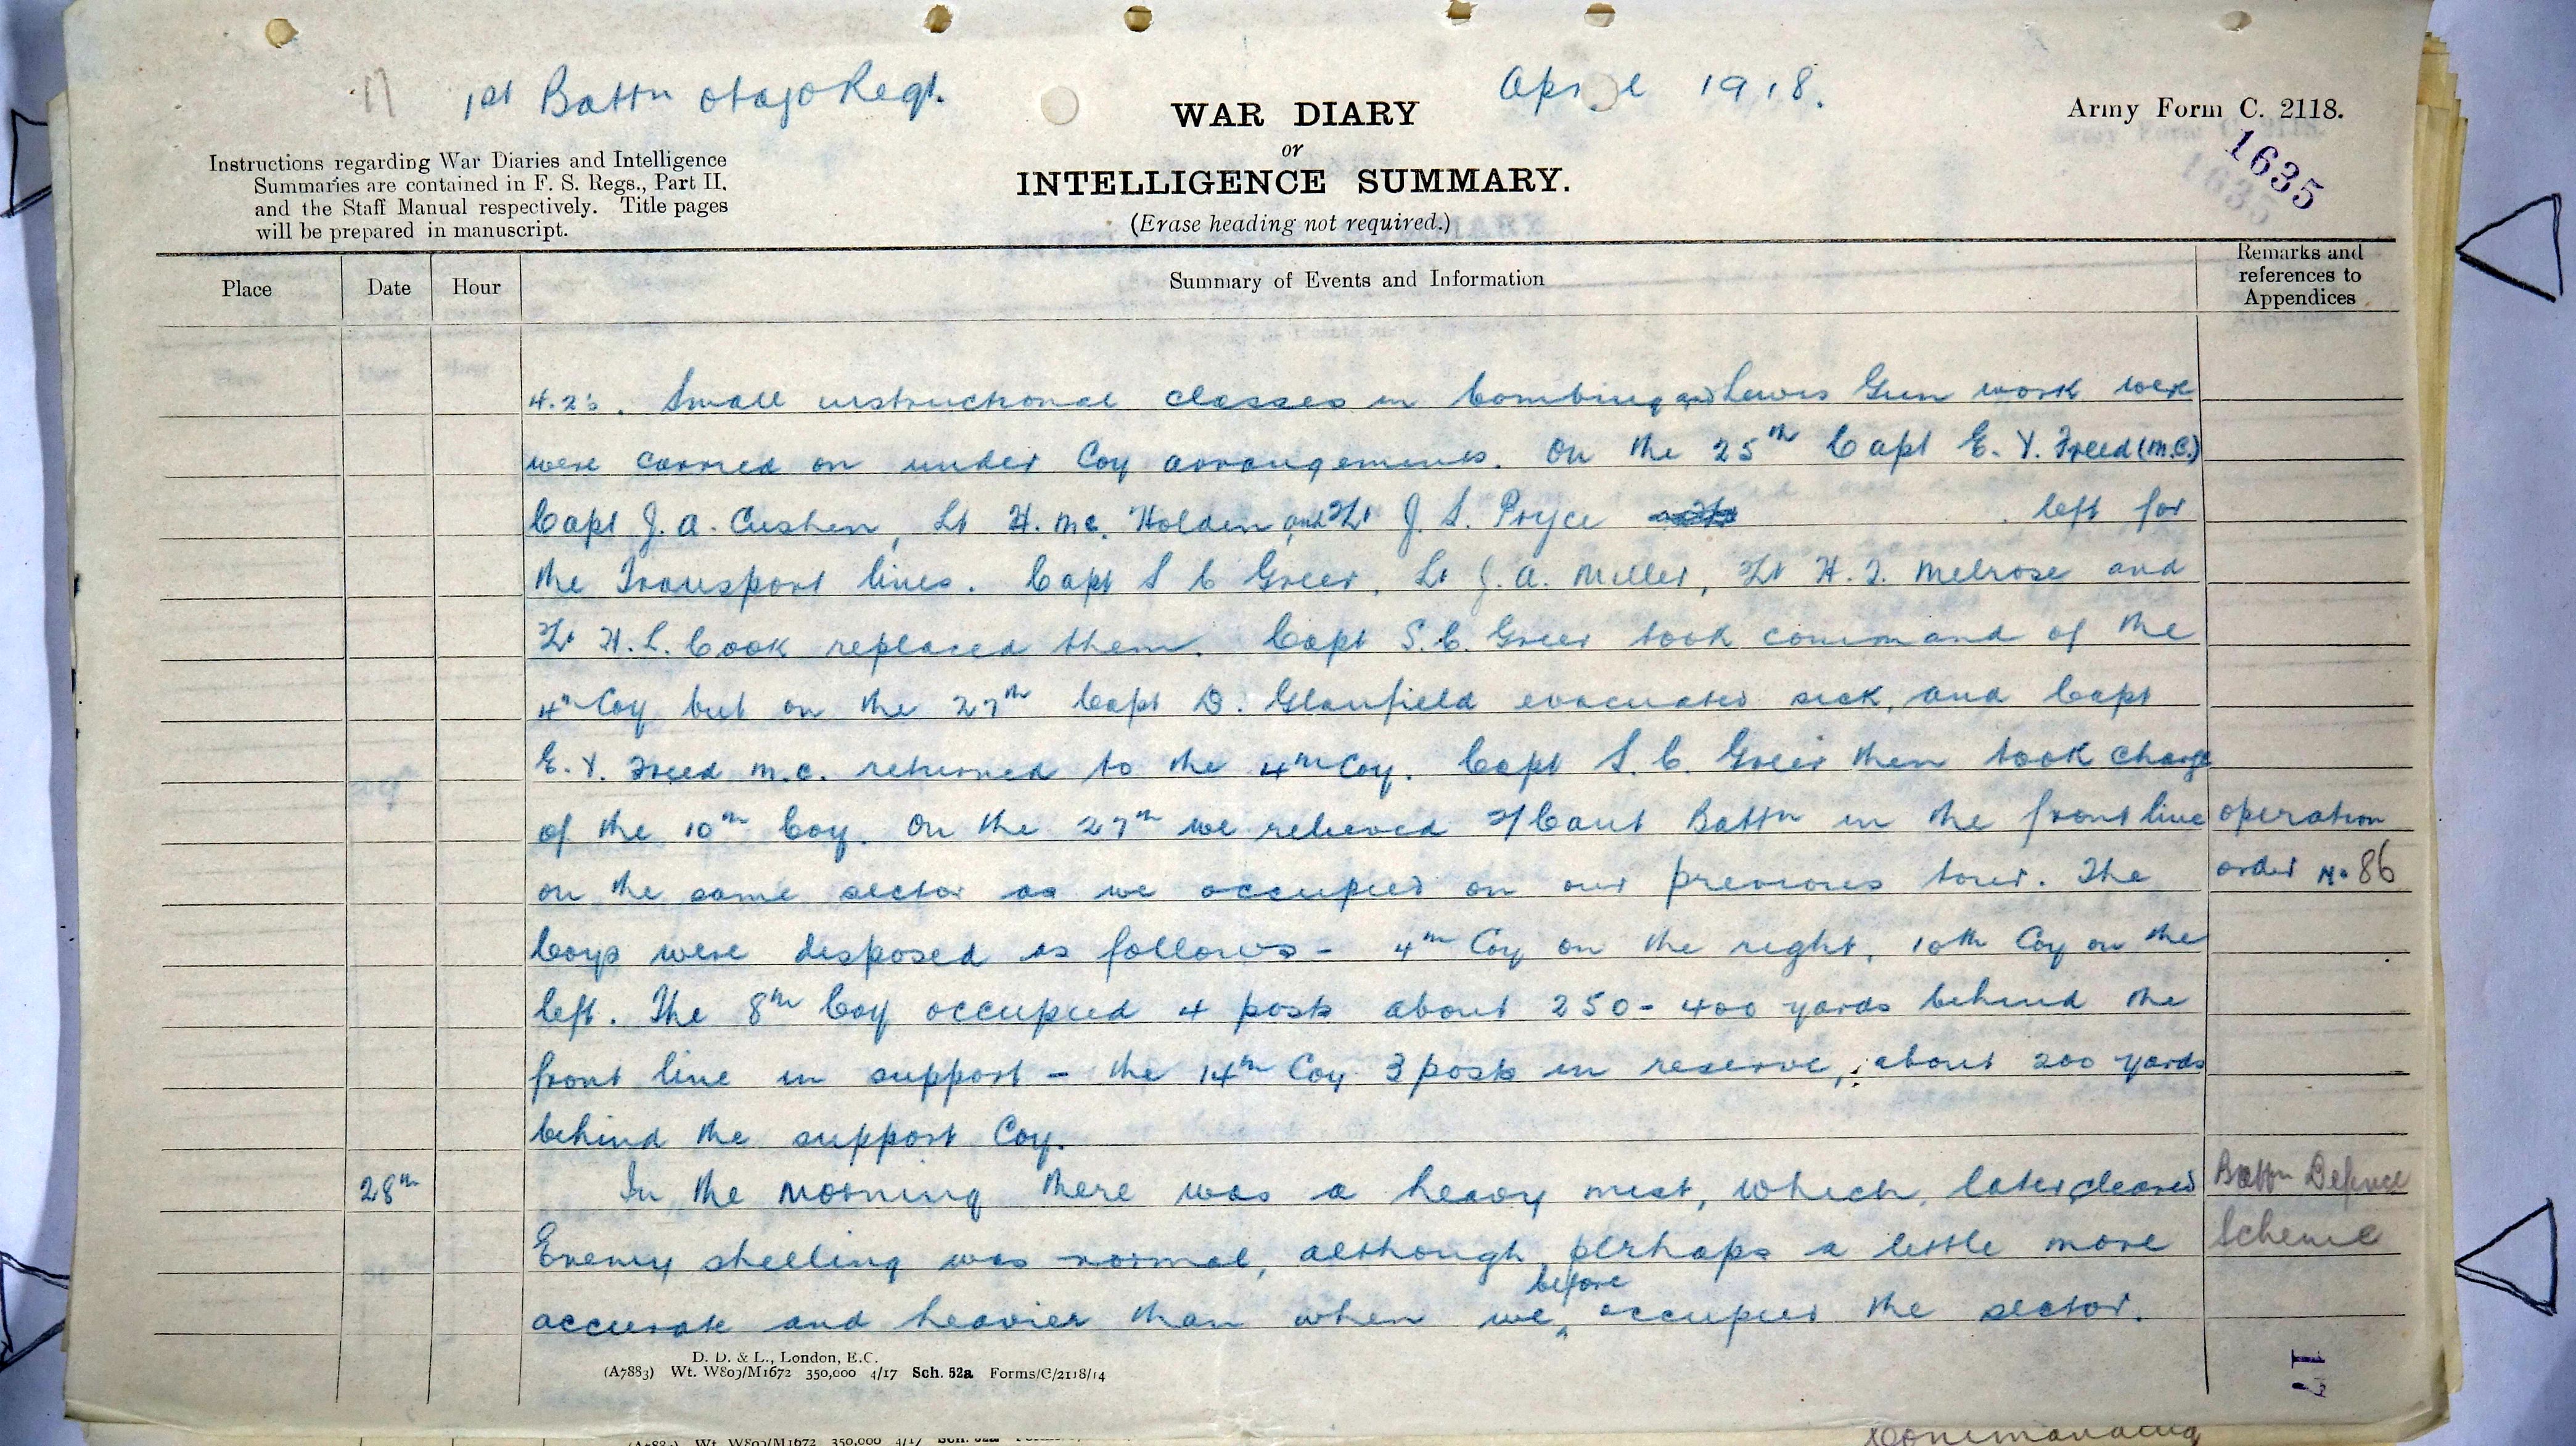 17
1st Battn Otago Regt.
April 1918.
WAR DIARY
or
INTELLIGENCE SUMMARY.
(Erase heading not required.)
Army Form C. 2118.
1635
Instructions regarding War Diaries and Intelligence
Summaries are contained in F. S. Regs., Part II.
and the Staff Manual respectively. Title pages
will be prepared in manuscript.
Place Date Hour Summary of Events and Information Remarks and
references to
Appendices
4.2's. Small instructional classes in bombing and Lewis Gun work were
were carried on under Coy arrangements. On the 25th Capt E. Y. Freed (M.C.)
Capt J. A. Cushen, Lt H. Mc. Holden, and Lt J. S. Pryce left for
the Transport lines. Capt S C Greer, Lt J. A. Miller, Lt H. T. Melrose and
Lt H. L. Cook replaced them. Capt S. C. Greer took command of the
4th Coy but on the 27th Capt D. Glanfield evacuated sick, and Capt
E. Y. Freed M.C. returned to the 4th Coy. Capt S. C. Greer then took charge
of the 10th Coy. On the 27th we relieved 2/Cant Battn in the front line operation
on the same sector as we occupied on our previous tour. The order No 86
Coys were disposed as follows - 4th Coy on the right, 10th Coy on the
left. The 8th Coy occupied 4 posts about 250 - 400 yards behind the
front line in support - the 14th Coy 3 posts in reserve, about 200 yards
behind the support Coy.
28th In the morning there was a heavy mist, which, later, cleared Battn Defence
Enemy shelling was normal, although perhaps a little more Scheme
before
accurate and heavier than when we occupied the sector.
D. D. & L., London, E.C.
(A7883) Wt. W809/M1672 350,000 4/17 Sch. 52a Forms/C/2118/14
17
(A7883) Wt. W809/M1672 350,000 4/17 Sch. 52a
Commanding